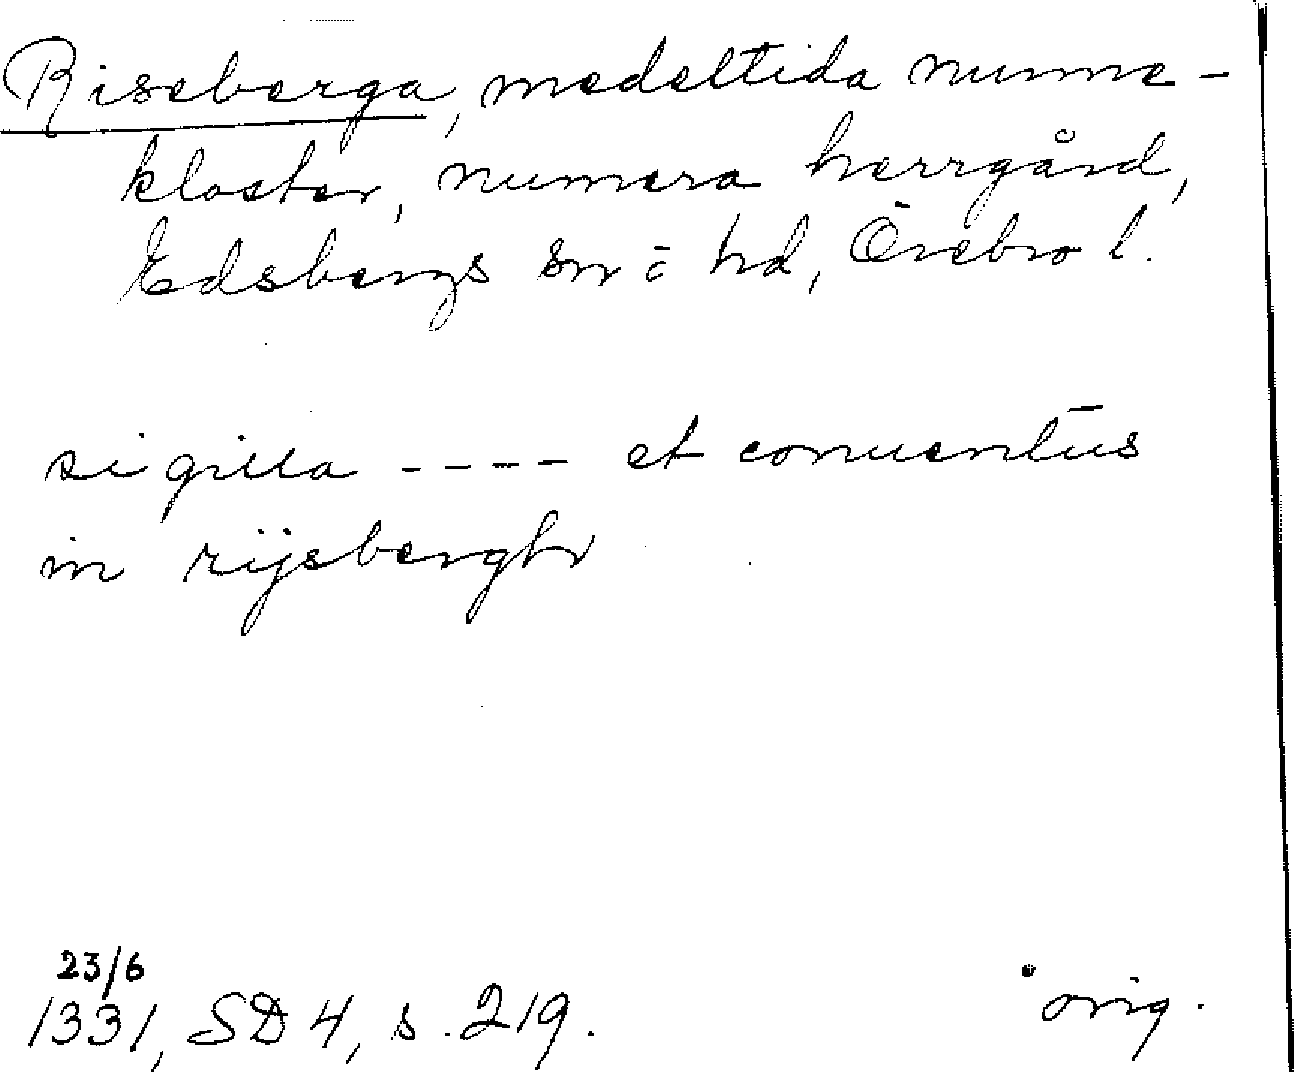 Riseberga, medeltida nunne-
kloster, numera herrgård,
Edsbergs sn o hd, Örebro l.
sigilla ---- et conuentus
in rijsbergh
23/6
1331, SD 4, s. 219.
orig.